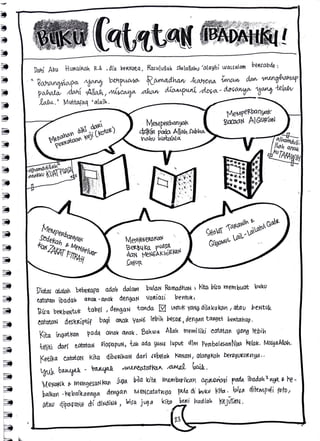 BUKU Catatan IBADAHKU!
Dari Abu Hurairah R.A. Dia berkata, Rasulullah Shalallahu 'alayhi wassalam bersabda :
" Barangsiapa yang berpuasa Ramadhan karena iman dan mengharap
pahala dari Allah, niscaya akan diampuni dosa - dosanya yang telah
lalu. " Muttafaq 'alaih.
Menahan diri dari
perkataan keji (kotor)
Memperbanyak
dzikir pada Allah Subha
nahu wata'ala
Memperbanyak
BACAAN ALQURAN
Alhamdulillah
KUAT PUASA
Alhamdulil
lah anak
TARAWIH
Memperbanyak
Sedekah & Membayar
kan ZAKAT FITRAH
Menyegerakan
BERBUKA PUASA
DAN MENGAKHIRKAN
SAHUR
Shalat TARAWIH &
Qiyamul Lail - Lailatul Qadr
Diatas adalah beberapa adab dalam bulan Ramadhan. Kita bisa membuat buku
catatan ibadah anak - anak dengan variasi bentuk.
Bisa berbentuk tabel, dengan tanda ☑ untuk yang dilakukan, atau bentuk
catatan deskripsi bagi anak yang lebih besar, dengan target bertahap.
Kita ingatkan pada anak-anak. Bahwa Allah memiliki catatan yang lebih
teliti dari catatan siapapun, tak ada yang luput dlm Pembalasan Nya kelak. MasyaAllah.
Ketika catatan kita diberikan dari sebelah kanan, alangkah beruntungnya...
Yuk banyak - banyak mencatatkan amal baik.
Menarik & mengesankan juga bila kita memberikan apresiasi pada ibadah² nya & ke-
baikan - kebaikannya dengan mencatatnya pula di buku kita. bisa ditempeli foto,
atau dipajang di dinding, bisa juga kita beri hadiah kejutan.